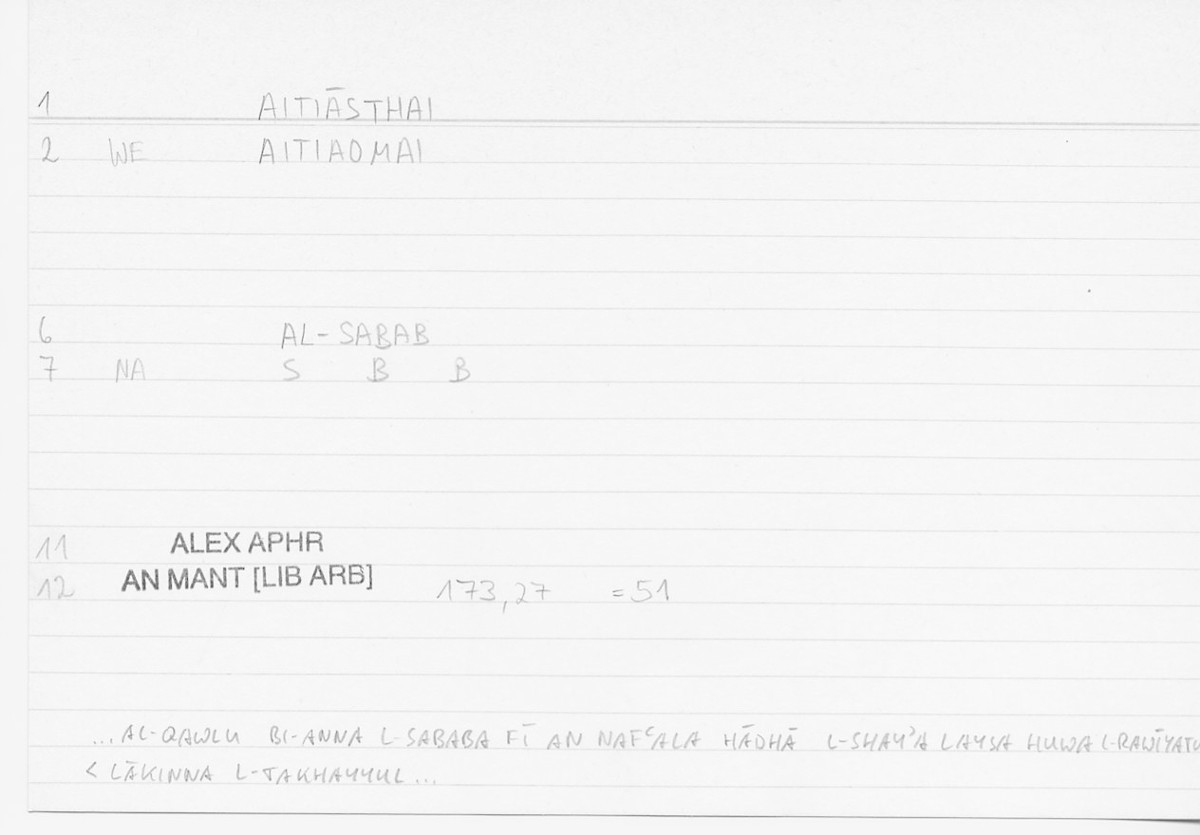 1 AITIĀSTHAI
2 WE AITIAOMAI
6 AL-SABAB
7 NA S B B
11 ALEX APHR
12 AN MANT [LIB ARB] 173,27 =51
...AL-QAWLU BI-ANNA L-SABABA FĪ AN NAFʿALA HĀDHĀ L-SHAYʾA LAYSA HUWA L-RAWĪYATU
< LĀKINNA L-TAKHAYYUL...